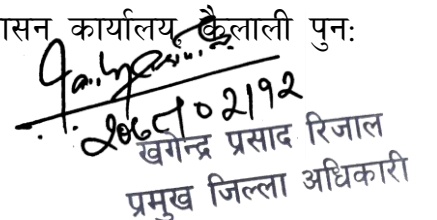 ासन कार्यालय, कैलाली पुन:
खगेन्द्र प्रसाद रिजाल
प्रमुख जिल्ला अधिकारी